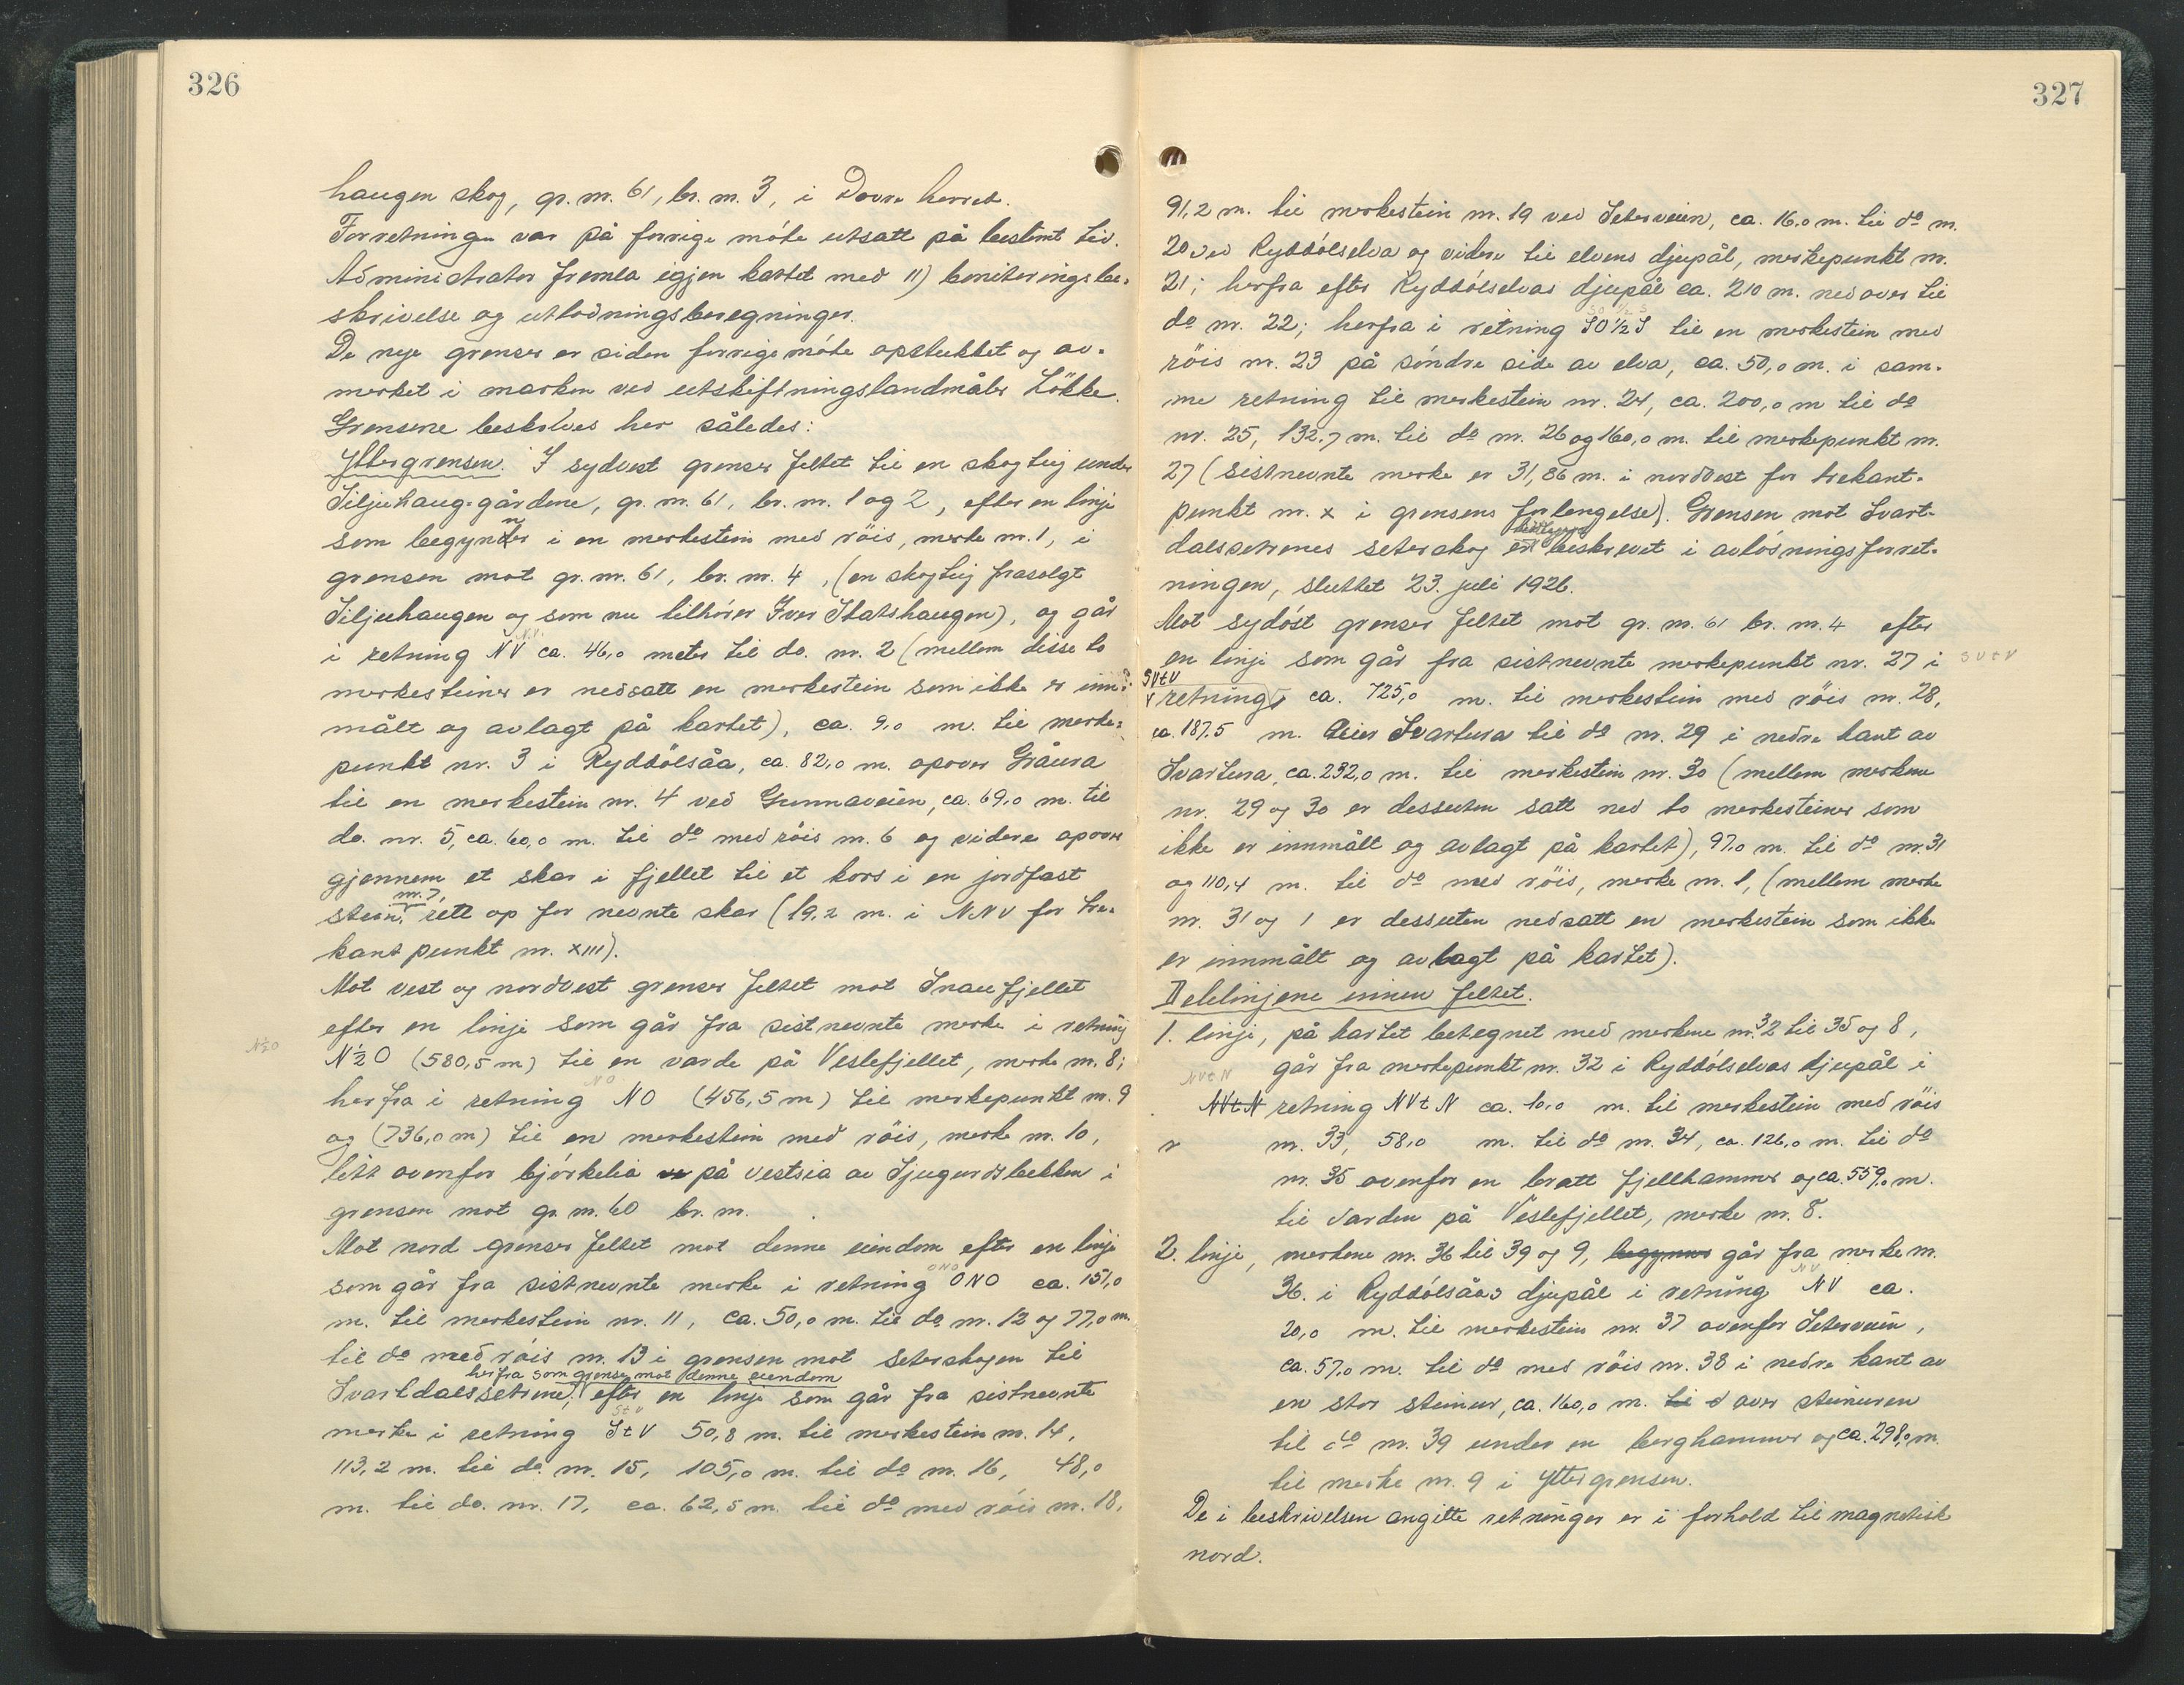 326
haugen skog, gr. nr. 61, br. nr. 3, i Dovre herred.
Forretningen var på forrige møte utsatt på bestemt tid.
Administrator fremla igjen kartet med 11) boniteringsbe-
skrivelse og utlodningsberegninger.
De nye grenser er siden forrige møte opstukket og av-
merket i marken ved utskiftningslandmåler Løkke.
Grensene beskrives her således:
Yttergrensen. I sydvest grenser feltet til en skogteig under
Siljuhaug-gårdene, gr. nr. 61, br. nr. 1 og 2, efter en linje
som begynner i en merkestein med röis, merke nr. 1, i
grensen mot gr. nr. 61, br. nr. 4, (en skogteig frasolgt
Siljuhaugen og som nu tilhører Iver Statshaugen), og går
i retning NV ca. 46,0 meter til do. nr. 2 (mellem disse to
merkesteiner er nedsatt en merkestein som ikke er inn-
målt og avlagt på kartet), ca. 9,0 m. til merke-
punkt nr. 3 i Ryddølsåa, ca. 82,0 m. opover Gråura
til en merkestein nr. 4 ved Gunnaveien, ca. 69,0 m. til
do. nr. 5, ca. 60,0 m. til do med röis nr. 6 og videre opover
gjennem et skar i fjellet til et kors i en jordfast
nr. 7,
stein, rett op for nevnte skar (19,2 m. i NNV for tre-
kantpunkt nr. XIII).
Mot vest og nordvest grenser feltet mot Snaufjellet
efter en linje som går fra sistnevnte merke i retning
N½O N½O (580,5 m) til en varde på Veslefjellet, merke nr. 8;
herfra i retning NO (456,5 m) til merkepunkt nr. 9
og (736,0 m) til en merkestein med röis, merke nr. 10,
litt ovenfor bjørkelia på vestsia av Sjugurdsbekken i
grensen mot gr. nr. 60 br. nr.
Mot nord grenser feltet mot denne eiendom efter en linje
som går fra sistnevnte merke i retning ONO ca. 151,0
m. til merkestein nr. 11, ca. 50,0 m. til do nr. 12 og 77,0 m.
til do med röis nr. 13 i grensen mot seterskogen til
herfra som grense mot denne eiendom
Svartdalssetrene, efter en linje som går fra sistnevnte
merke i retning StV 50,8 m. til merkestein nr. 14,
113,2 m. til do. nr. 15, 105,0 m. til do nr. 16, 48,0
m. til do. nr. 17, ca. 62,5 m. til do med röis nr. 18,
327
91,2 m. til merkestein nr. 19 ved Seterveien, ca. 16,0 m. til do nr.
20 ved Ryddølselva og videre til elvens djupål, merkepunkt nr.
21; herfra efter Ryddølselvas djupål ca. 210 m. nedover til
do nr. 22; herfra i retning SO½S til en merkestein med
röis nr. 23 på søndre side av elva, ca. 50,0 m. i sam-
me retning til merkestein nr. 24, ca. 200,0 m til do
nr. 25, 132,7 m. til do nr. 26 og 160,0 m. til merkepunkt nr.
27 (sistnevnte merke er 31,86 m. i nordvest for trekant-
punkt nr. X i grensens forlengelse). Grensen mot Svart-
dalssetrenes seterskog er beskrevet i avløsningsforret-
ningen, sluttet 23. juli 1926.
Mot sydøst grenser feltet mot gr. nr. 61 br. nr. 4 efter
en linje som går fra sistnevnte merkepunkt nr. 27 i SVtV
SVtV
retning ca. 725,0 m. til merkestein med röis nr. 28,
ca. 187,5 m. over Svartura til do nr. 29 i nedre kant av
Svartura, ca. 232,0 m. til merkestein nr. 30 (mellem merkene
nr. 29 og 30 er dessuten satt ned to merkesteiner som
ikke er innmålt og avlagt på kartet), 97,0 m. til do nr. 31
og 110,4 m. til do med röis, merke nr. 1, (mellem merke
nr. 31 og 1 er dessuten nedsatt en merkestein som ikke
er innmålt og avlagt på kartet).
Delelinjene innen feltet.
1. linje, på kartet betegnet med merkene nr. 32 til 35 og 8,
går fra merkepunkt nr. 32 i Ryddølselvas djupål i
NVtN
NVtN retning NVtN ca. 10,0 m. til merkestein med röis
nr. 33, 58,0 m. til do nr. 34, ca. 126,0 m. til do
nr. 35 ovenfor en bratt fjellhammer og ca. 559,0 m.
til varden på Veslefjellet, merke nr. 8.
2. linje, merkene nr. 36 til 39 og 9, begynner går fra merke nr.
36 i Ryddølsåas djupål i retning NV ca.
20,0 m. til merkestein nr. 37 ovenfor Seterveien,
ca. 57,0 m. til do med röis nr. 38 i nedre kant av
en stor steinur, ca. 160,0 m. til d over steinuren
til do nr. 39 under en berghammer og ca. 298,0 m.
til merke nr. 9 i yttergrensen.
De i beskrivelsen angitte retninger er i forhold til magnetisk
nord.